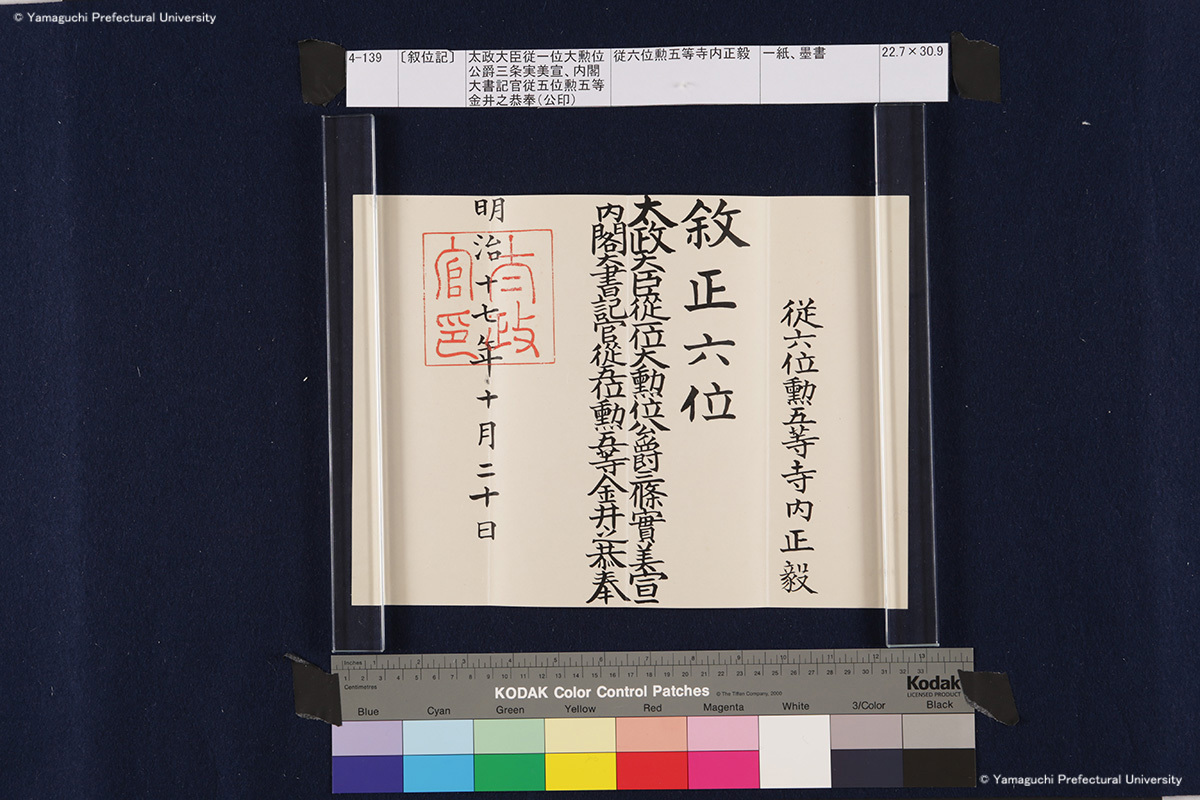 © Yamaguchi Prefectural University
4-139
〔叙位記〕
太政大臣従一位大勲位
公爵三条実美宣、内閣
大書記官従五位勲五等
金井之恭奉(公印)
従六位勲五等寺内正毅
一紙、墨書
22.7×30.9
従六位勲五等寺内正毅
敘正六位
太政大臣從一位大勲位公爵三條實美宣
内閣大書記官從五位勲五等金井之恭奉
明治十七年十月二十日
太政
官印
Inches 1 2 3 4 5 6 7 8 9 10 11 12 13
1 2 3 4 5 6 7 8 9 10 11 12 13 14 15 16 17 18 19 20 21 22 23 24 25 26 27 28 29 30 31 32 33
Centimetres
KODAK Color Control Patches
© The Tiffen Company, 2000
Kodak
LICENSED PRODUCT
Blue
Cyan
Green
Yellow
Red
Magenta
White
3/Color
Black
© Yamaguchi Prefectural University